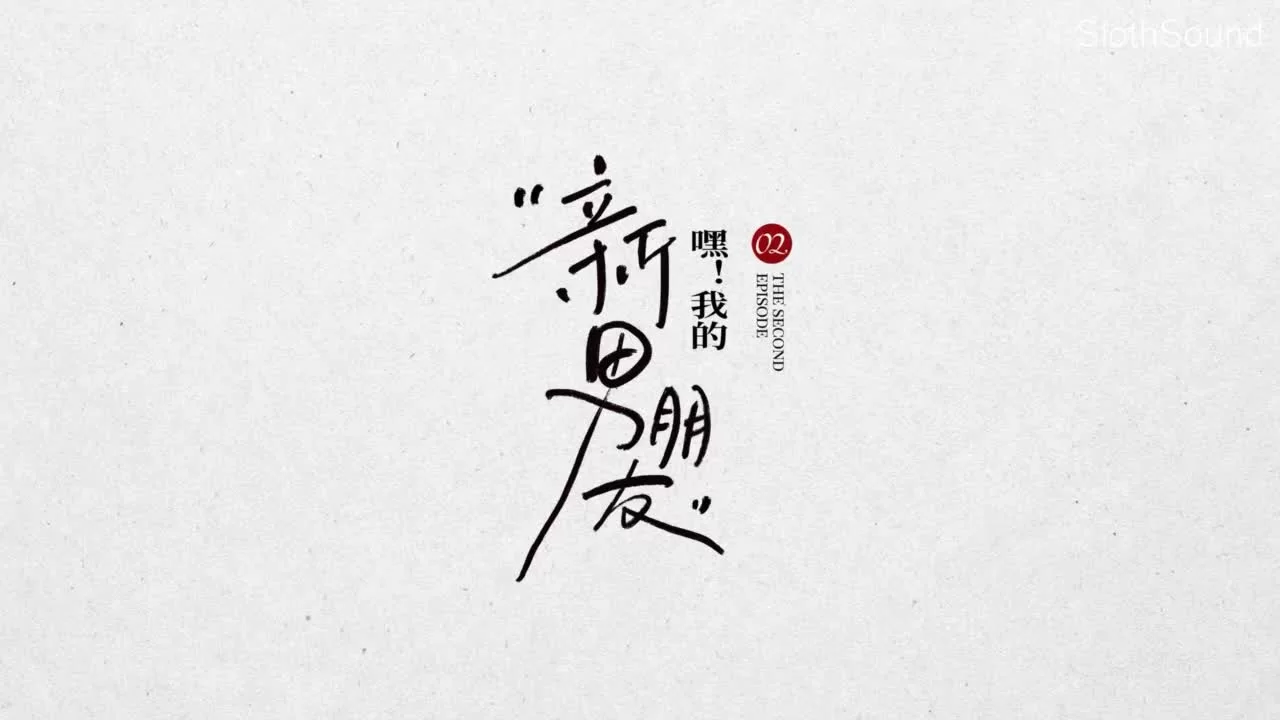 SlothSound
02
THE SECOND
EPISODE
嘿！我的
"新男朋友"